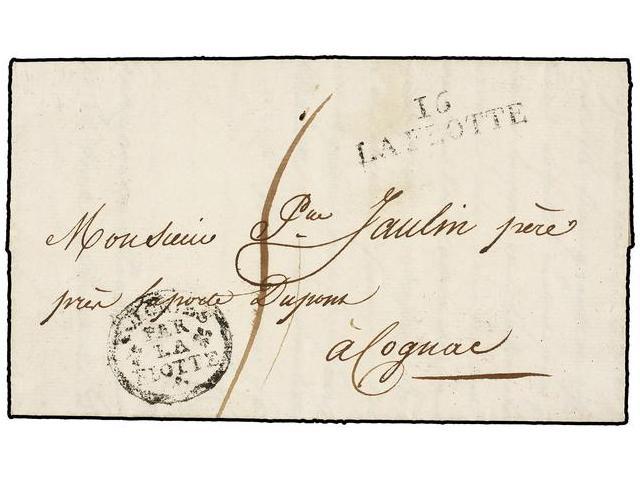 16
LA FLOTTE
Monsieur Pre Jaulin père
près la porte Dupont
PAR
LA
FLOTTE
à Cognac